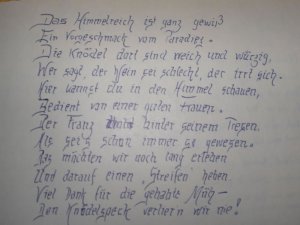 Das Himmelreich ist ganz gewiß
Ein Vorgeschmack vom Paradies.
Die Knödel dort sind weich und würzig,
Wer sagt der Wein sei schlecht, der irrt sich.
Hier kannst Du in den Himmel schauen,
Bedient von einer guten Frauen.
Der Franz hinter seinem Tresen.
Als sei's schon immer so gewesen.
Das möchten wir noch lang erleben
Und darauf einen "Streifen" heben.
Viel Dank für die gehabte Müh –
Den Knödelspeck verliern wir nie!